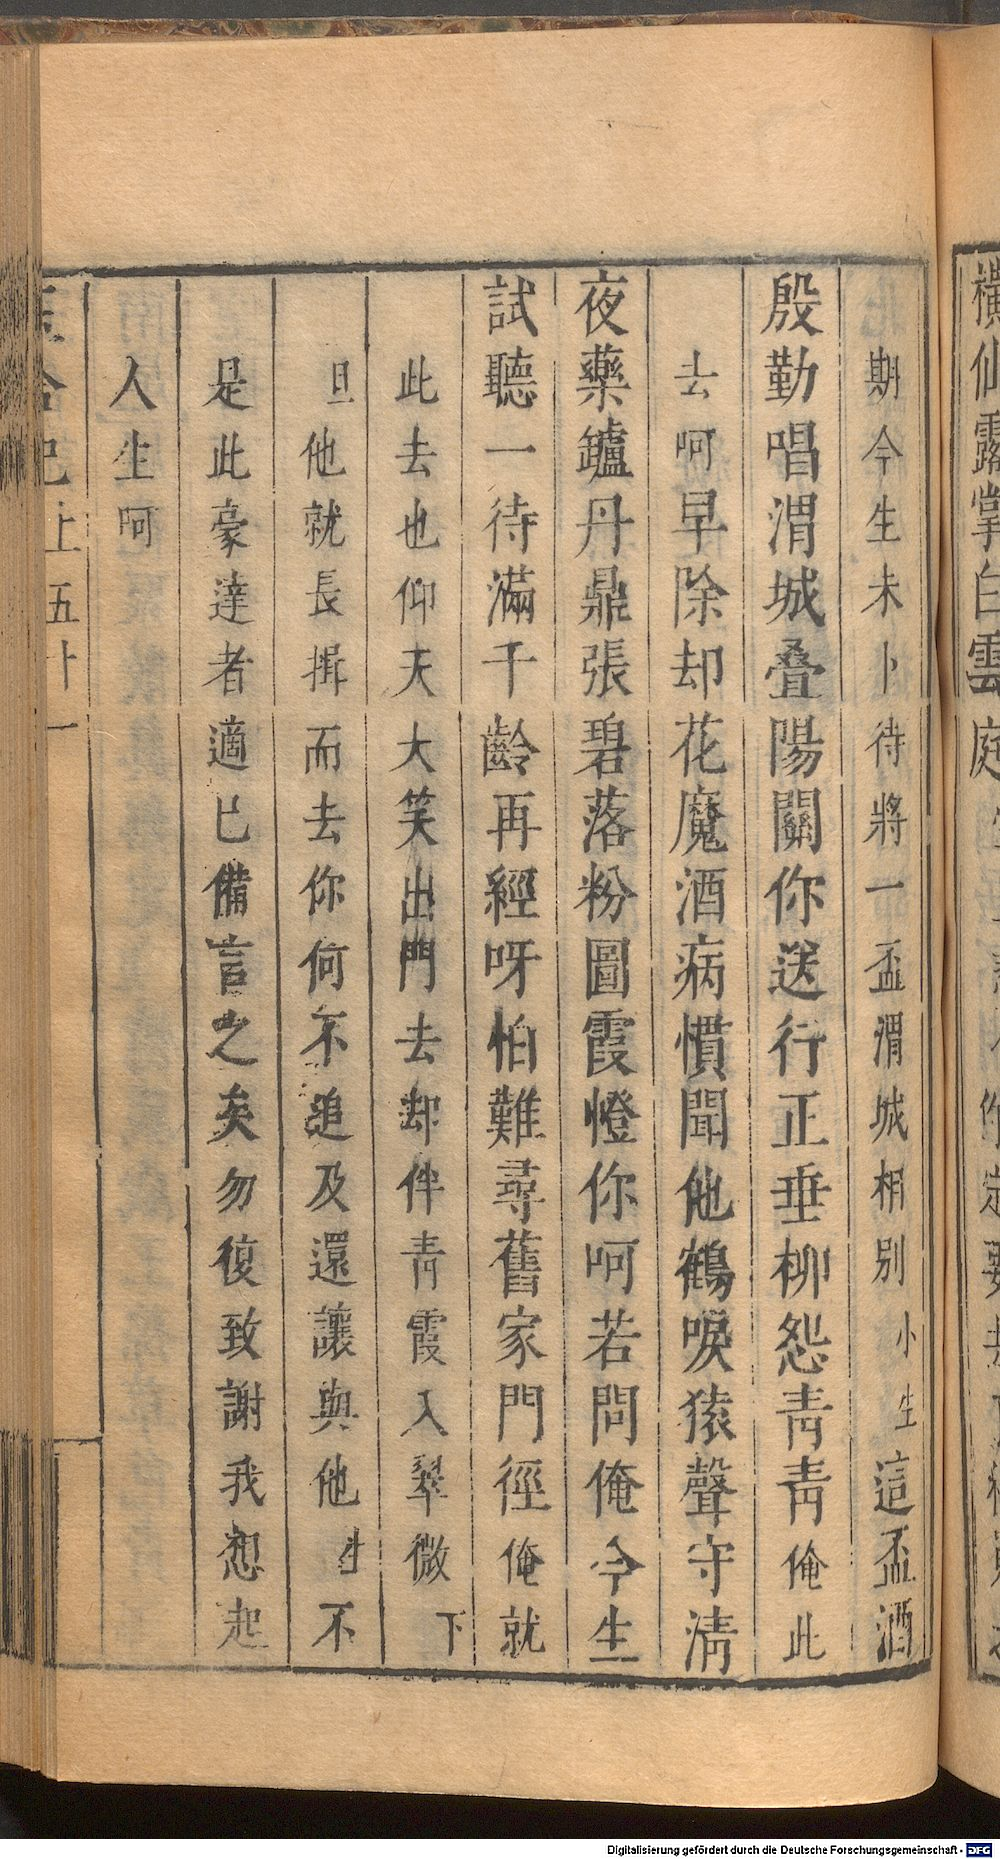 橫仙露掌白雲庭
期今生未卜待將一盃渭城相別小生這盃酒
殷勤唱渭城疊陽關你送行正垂柳怨青青俺此
去呵早除却花魔酒病慣聞他鶴唳猿聲守清
夜藥鑪丹鼎張碧落粉圖霞燈你呵若問俺今生
試聽一待滿千齡再經呀怕難尋舊家門徑俺就
此去也仰天大笑出門去却伴青霞入翠微下
旦他就長揖而去你何不追及還讓與他生不
是此豪達者適已備言之矣勿復致謝我想起
人生呵
上五十一
Digitalisierung gefördert durch die Deutsche Forschungsgemeinschaft - DFG